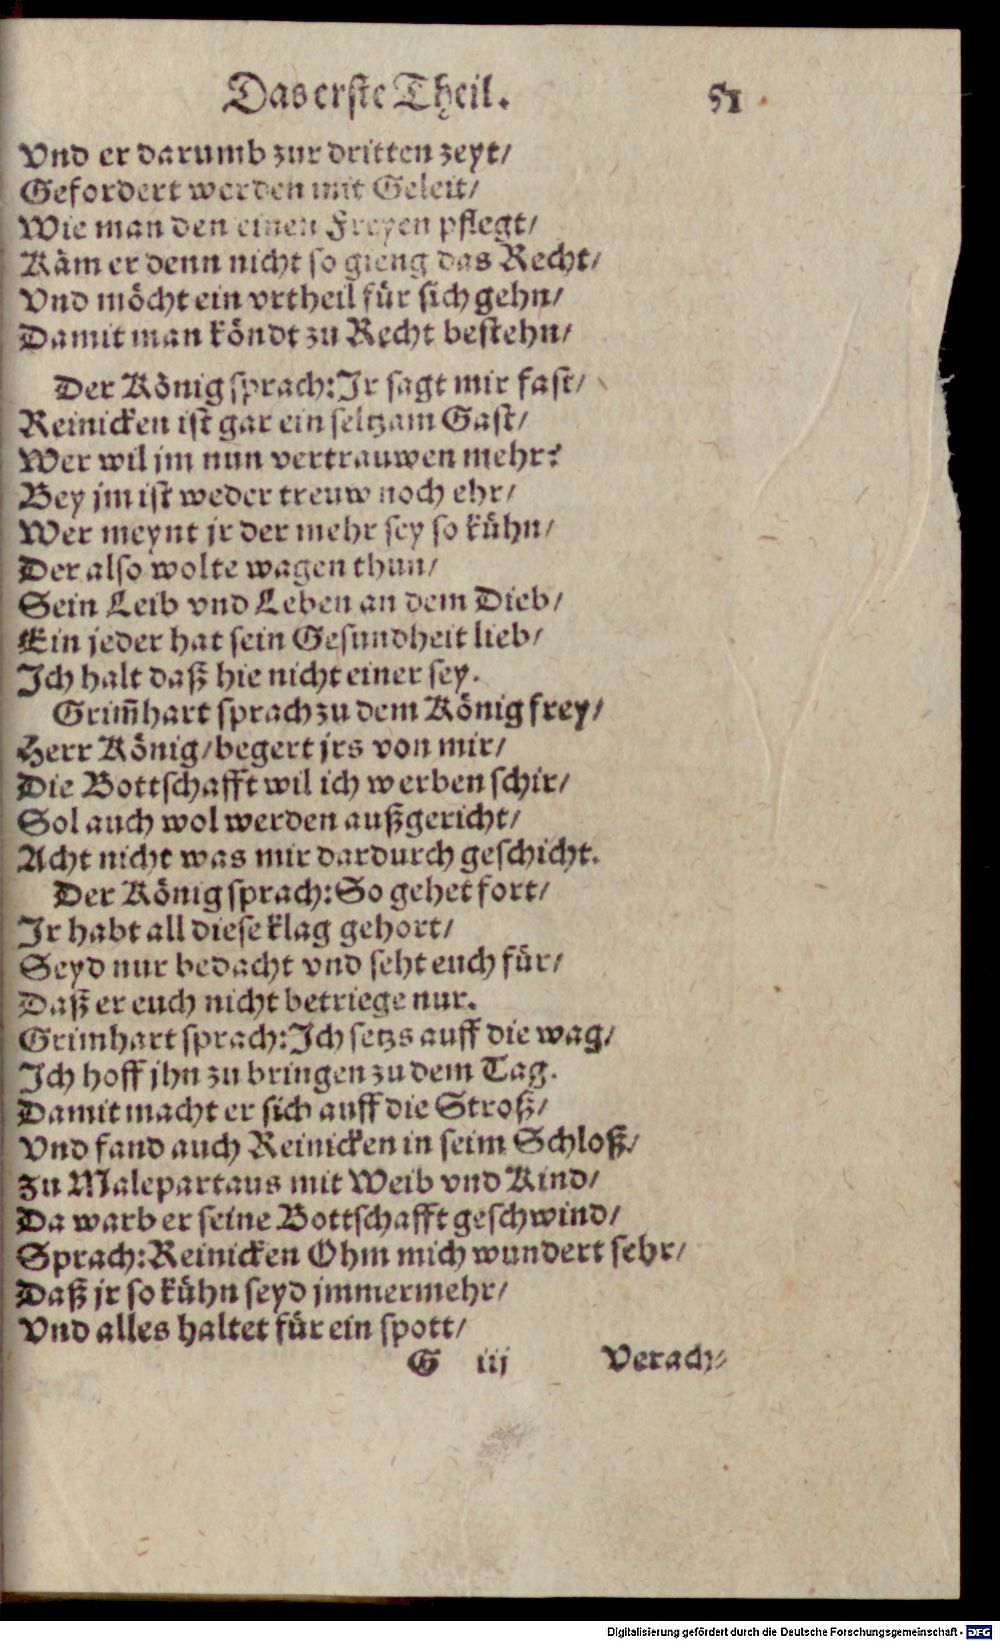 Das erste Theil. 51
Vnd er darumb zur dritten zeyt/
Gefordert werden mit Geleit/
Wie man den einen Freyen pflegt/
Käm er denn nicht so gieng das Recht/
Vnd möcht ein vrtheil für sich gehn/
Damit man köndt zu Recht bestehn/
Der König sprach: Jr sagt mir fast/
Reinicken ist gar ein seltzam Gast/
Wer wil jm nun vertrauwen mehr?
Bey jm ist weder treuw noch ehr/
Wer meynt jr der mehr sey so kühn/
Der also wolte wagen thun/
Sein Leib vnd Leben an dem Dieb/
Ein jeder hat sein Gesundheit lieb/
Ich halt daß hie nicht einer sey.
Grim̃hart sprach zu dem König frey/
Herr König/ begert jrs von mir/
Die Bottschafft wil ich werben schir/
Sol auch wol werden außgericht/
Acht nicht was mir dardurch geschicht.
Der König sprach: So gehet fort/
Jr habt all diese klag gehort/
Seyd nur bedacht vnd seht euch für/
Daß er euch nicht betriege nur.
Grimhart sprach: Ich setzs auff die wag/
Ich hoff jhn zu bringen zu dem Tag.
Damit macht er sich auff die Stroß/
Vnd fand auch Reinicken in seim Schloß/
Zu Malepartaus mit Weib vnd Kind/
Da warb er seine Bottschafft geschwind/
Sprach: Reinicken Ohm mich wundert sehr/
Daß jr so kühn seyd jmmermehr/
Vnd alles haltet für ein spott/
G iij Verach⸗
Digitalisierung gefördert durch die Deutsche Forschungsgemeinschaft - DFG